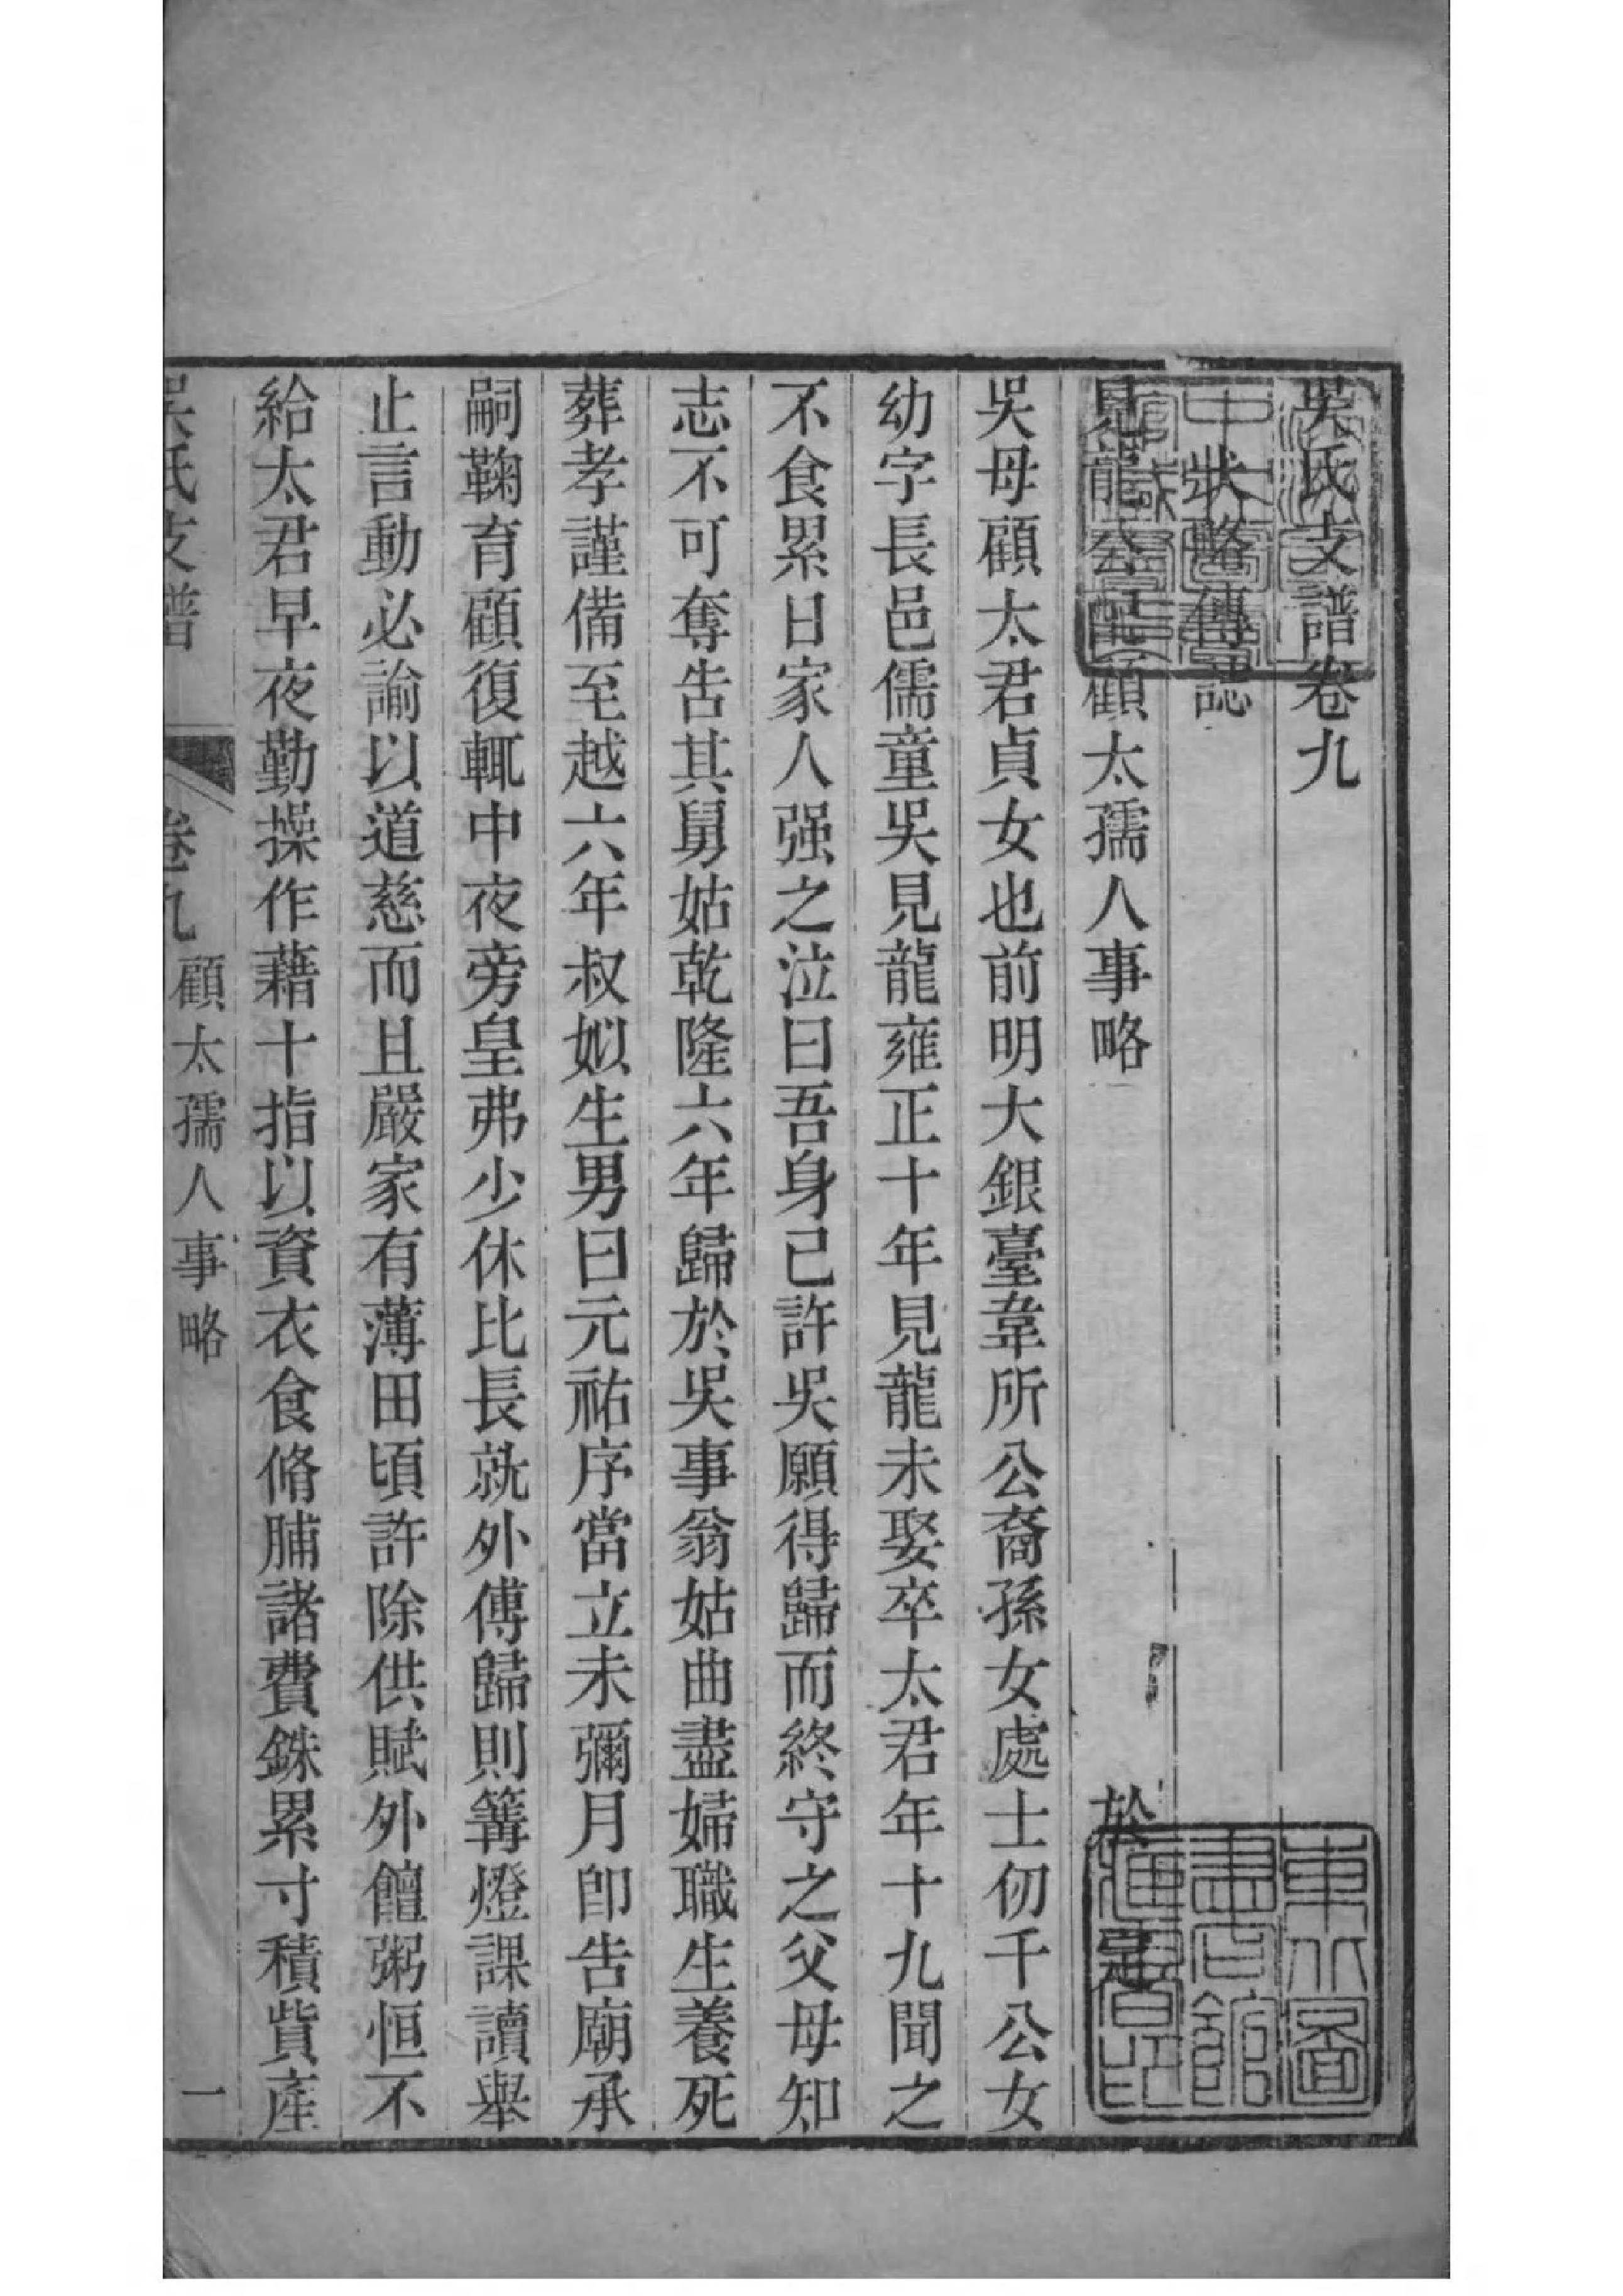 吳氏支譜卷九
狀略傳誌
見龍公配顧太孺人事略
於
吳母顧太君貞女也前明大銀臺韋所公裔孫女處士仞千公女
幼字長邑儒童吳見龍雍正十年見龍未娶卒太君年十九聞之
不食累日家人强之泣曰吾身已許吳願得歸而終守之父母知
志不可奪吿其舅姑乾隆六年歸於吳事翁姑曲盡婦職生養死
葬孝謹備至越六年叔姒生男曰元祐序當立未彌月卽告廟承
嗣鞠育顧復輒中夜旁皇弗少休比長就外傅歸則篝燈課讀舉
止言動必諭以道慈而且嚴家有薄田頃許除供賦外饘粥恒不
給太君早夜勤操作藉十指以資衣食脩脯諸費銖累寸積貲產
吳氏支譜
卷九
顧太孺人事略
一
東北圖
書館